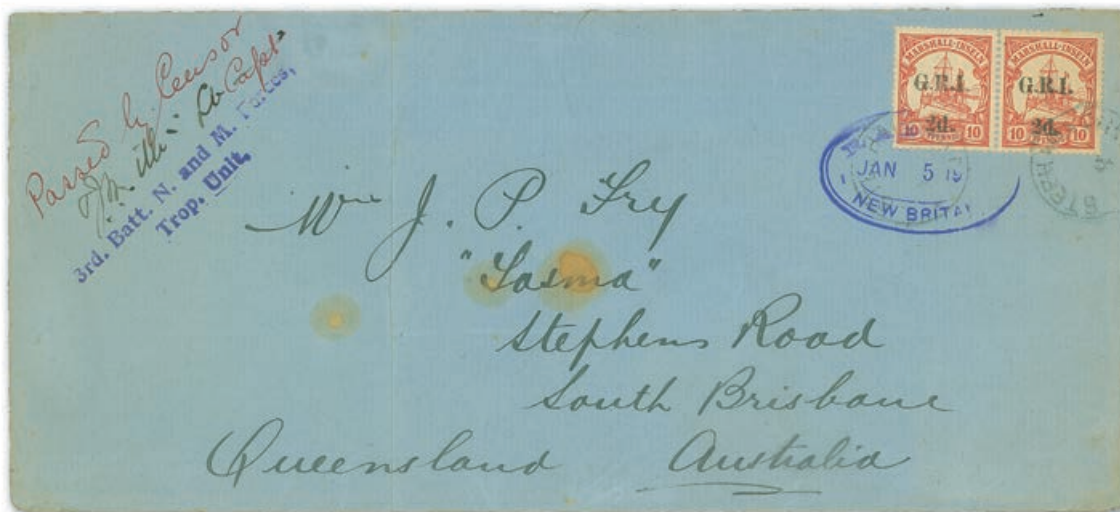 Passed by Censor
Capt.
3rd. Batt. N. and M. Forces,
Trop. Unit.
MARSHALL-INSELN
G.R.I.
2d.
10 PFENNIG 10
MARSHALL-INSELN
G.R.I.
2d.
10 10
JAN 5 19
NEW BRITAI
J. P. Fry
"Tasma"
Stephens Road
South Brisbane
Queensland Australia